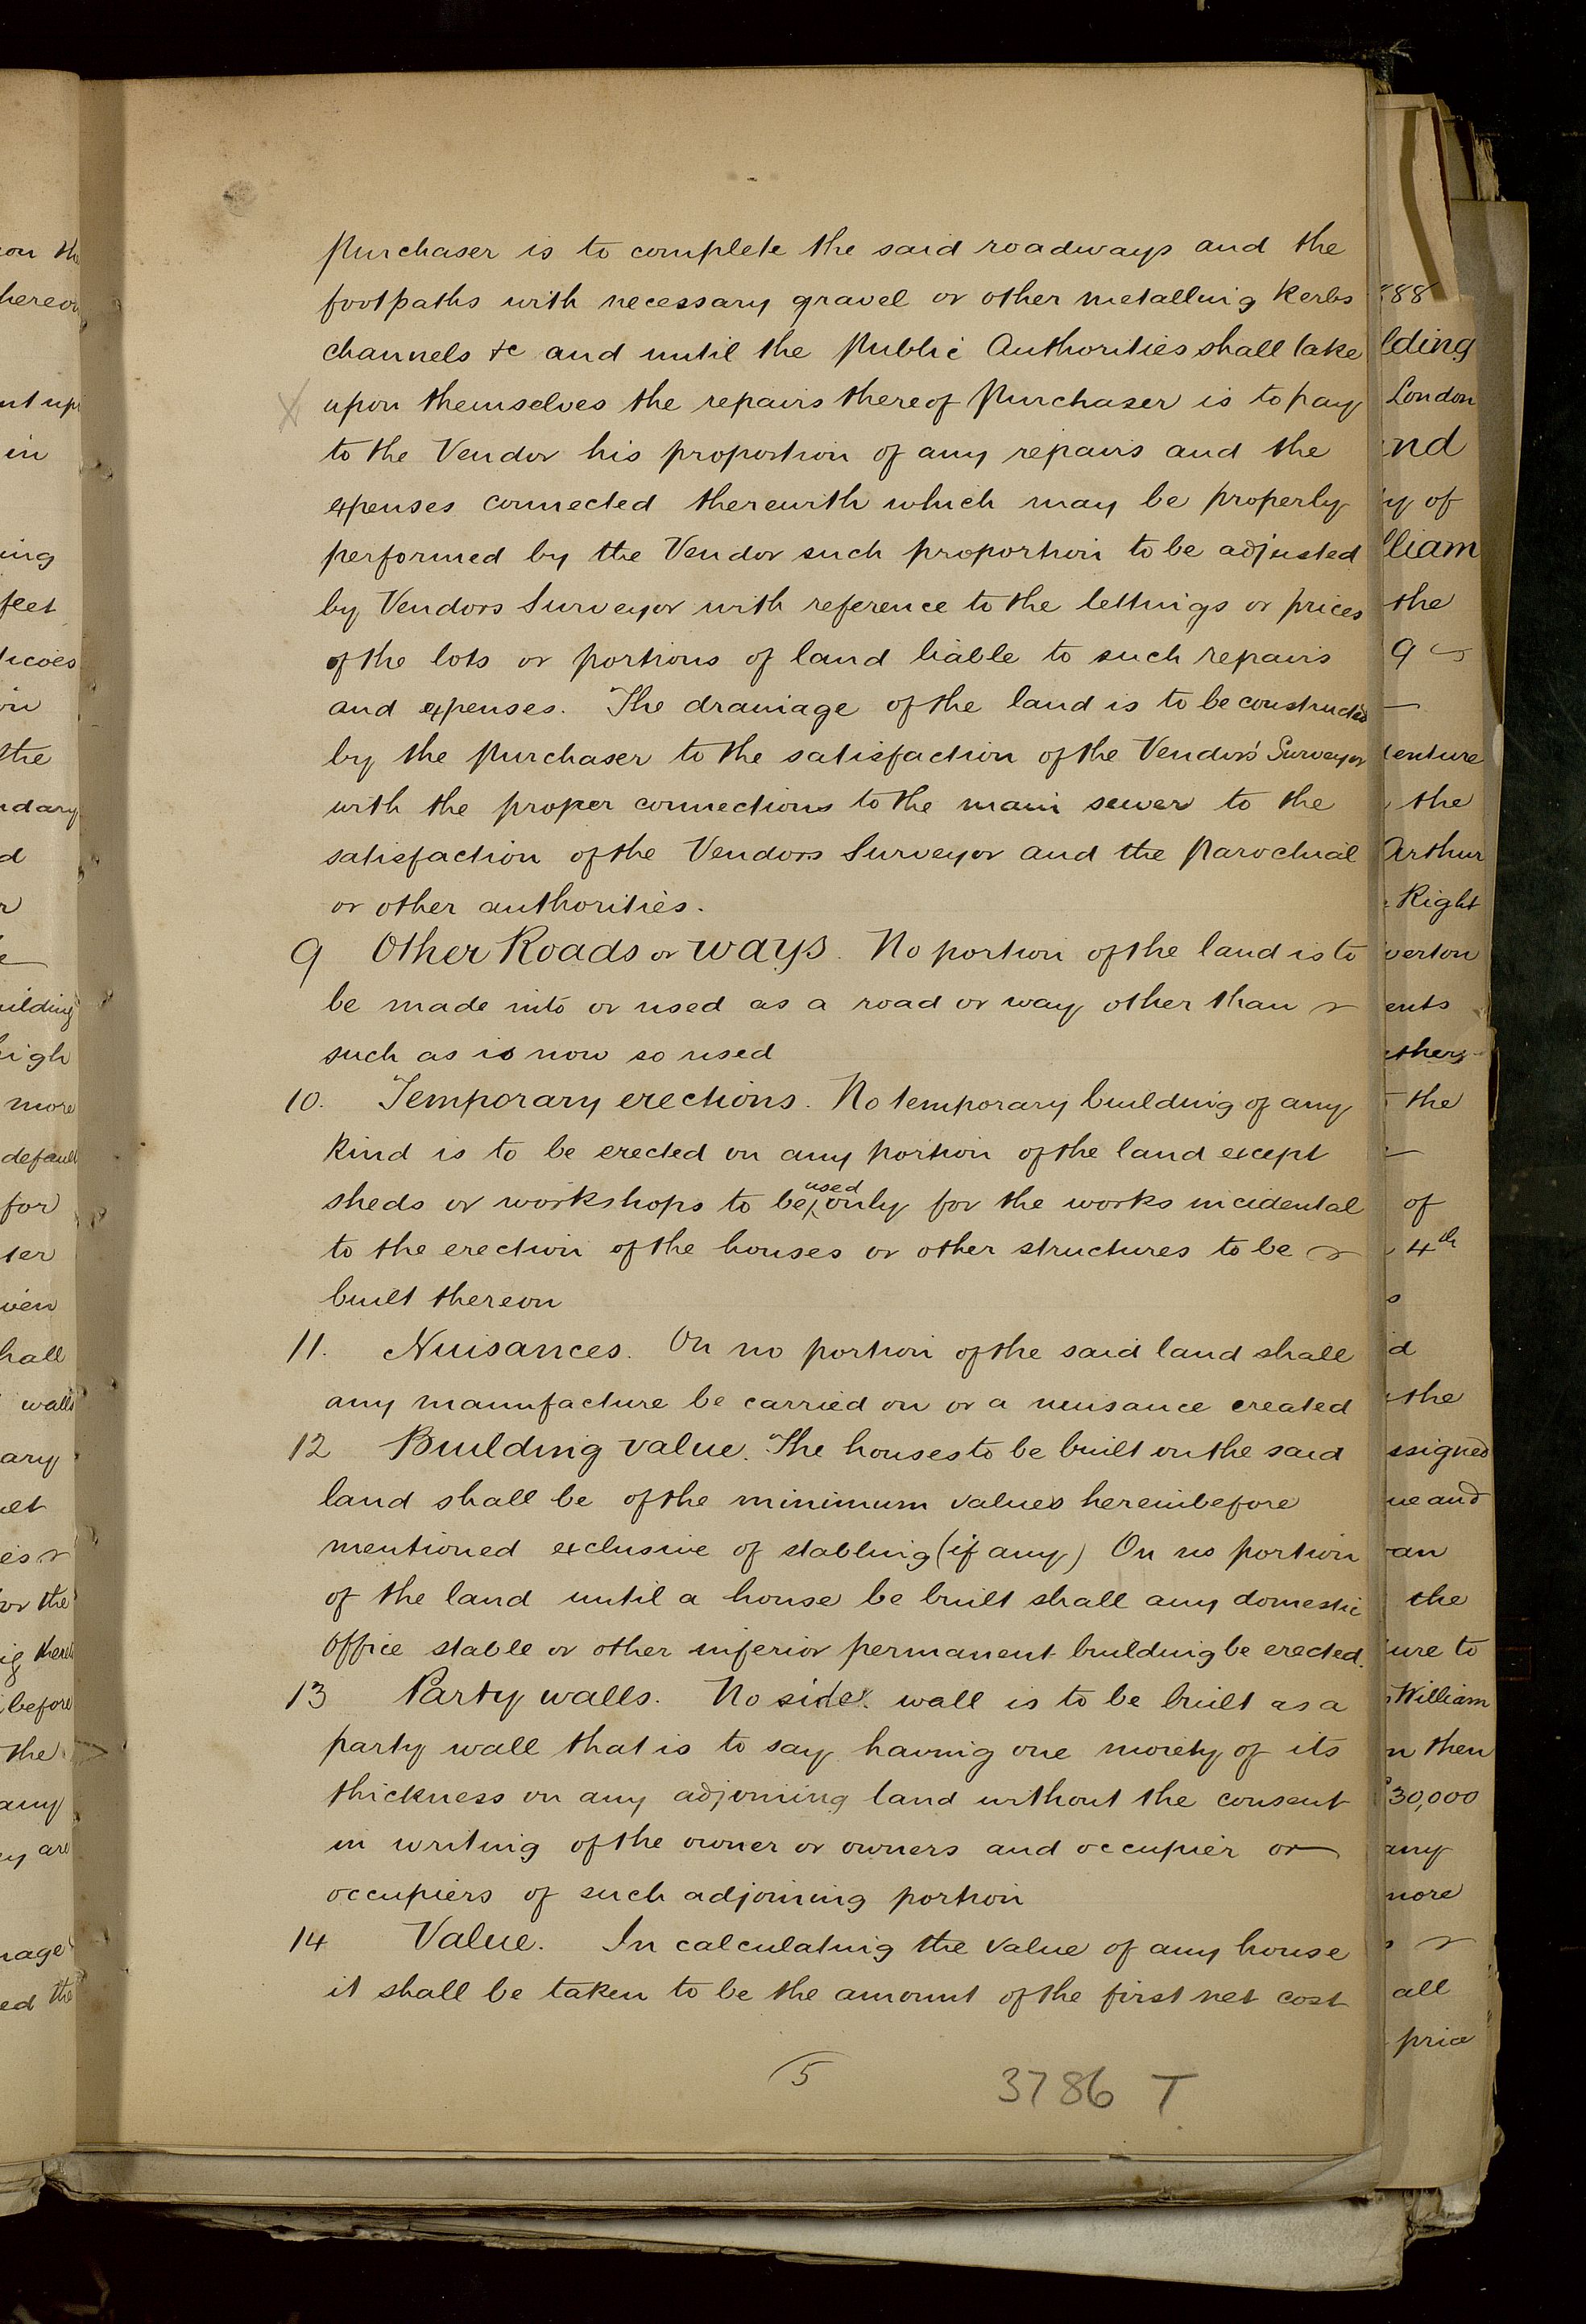 purchaser is to complete the said roadways and the
footpaths with necessary gravel or other metalling kerbs
channels &c and until the public Authorities shall take
upon themselves the repairs thereof purchaser is to pay
to the Vendor his proportion of any repairs and the
expenses connected therewith which may be properly
performed by the Vendor such proportion to be adjusted
by Vendors Surveyor with reference to the lettings or prices
of the lots or portions of land liable to such repairs
and expenses. The drainage of the land is to be constructed
by the purchaser to the satisfaction of the Vendors' Surveyor
with the proper connections to the main sewer to the
satisfaction of the Vendors Surveyor and the parochial
or other authorities.
9 Other Roads or ways. No portion of the land is to
be made into or used as a road or way other than
such as is now so used
10. Temporary erections. No temporary building of any
kind is to be erected on any portion of the land except
sheds or workshops to be used only for the works incidental
to the erection of the houses or other structures to be
built thereon
11. Nuisances. On no portion of the said land shall
any manufacture be carried on or a nuisance created
12 Building value. The houses to be built on the said
land shall be of the minimum values hereinbefore
mentioned exclusive of stabling (if any) On no portion
of the land until a house be built shall any domestic
office stable or other inferior permanent building be erected.
13 Party walls. No side wall is to be built as a
party wall that is to say having one moiety of its
thickness on any adjoining land without the consent
in writing of the owner or owners and occupier or
occupiers of such adjoining portion
14 Value. In calculating the value of any house
it shall be taken to be the amount of the first net cost
5
3786 T